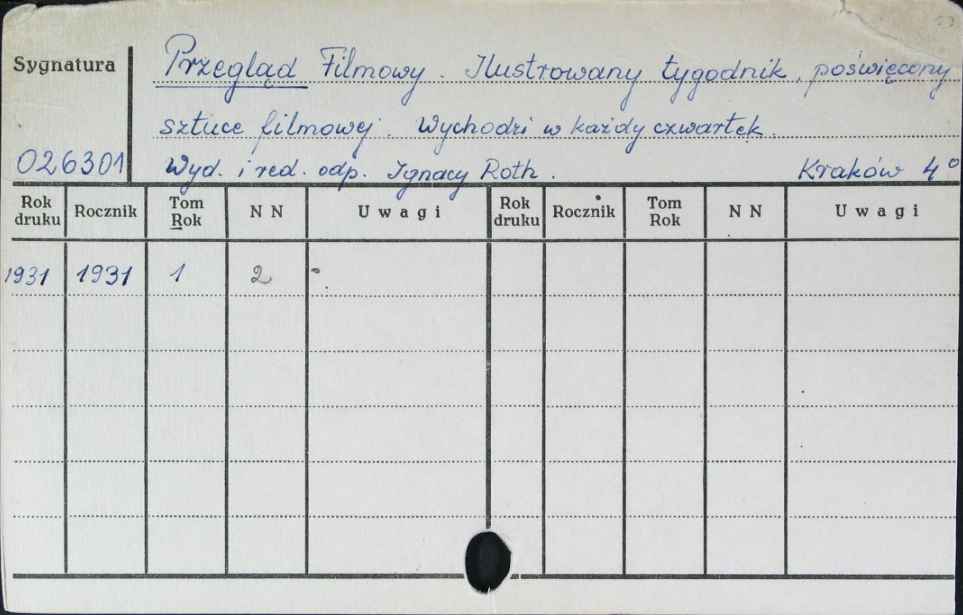 Sygnatura
Przegląd Filmowy. Ilustrowany tygodnik, poświęcony
sztuce filmowej. Wychodzi w każdy czwartek.
026301
Wyd. i red. odp. Ignacy Roth. Kraków 4°
Rok druku Rocznik Tom Rok N N Uwagi Rok druku Rocznik Tom Rok N N Uwagi
1931 1931 1 2